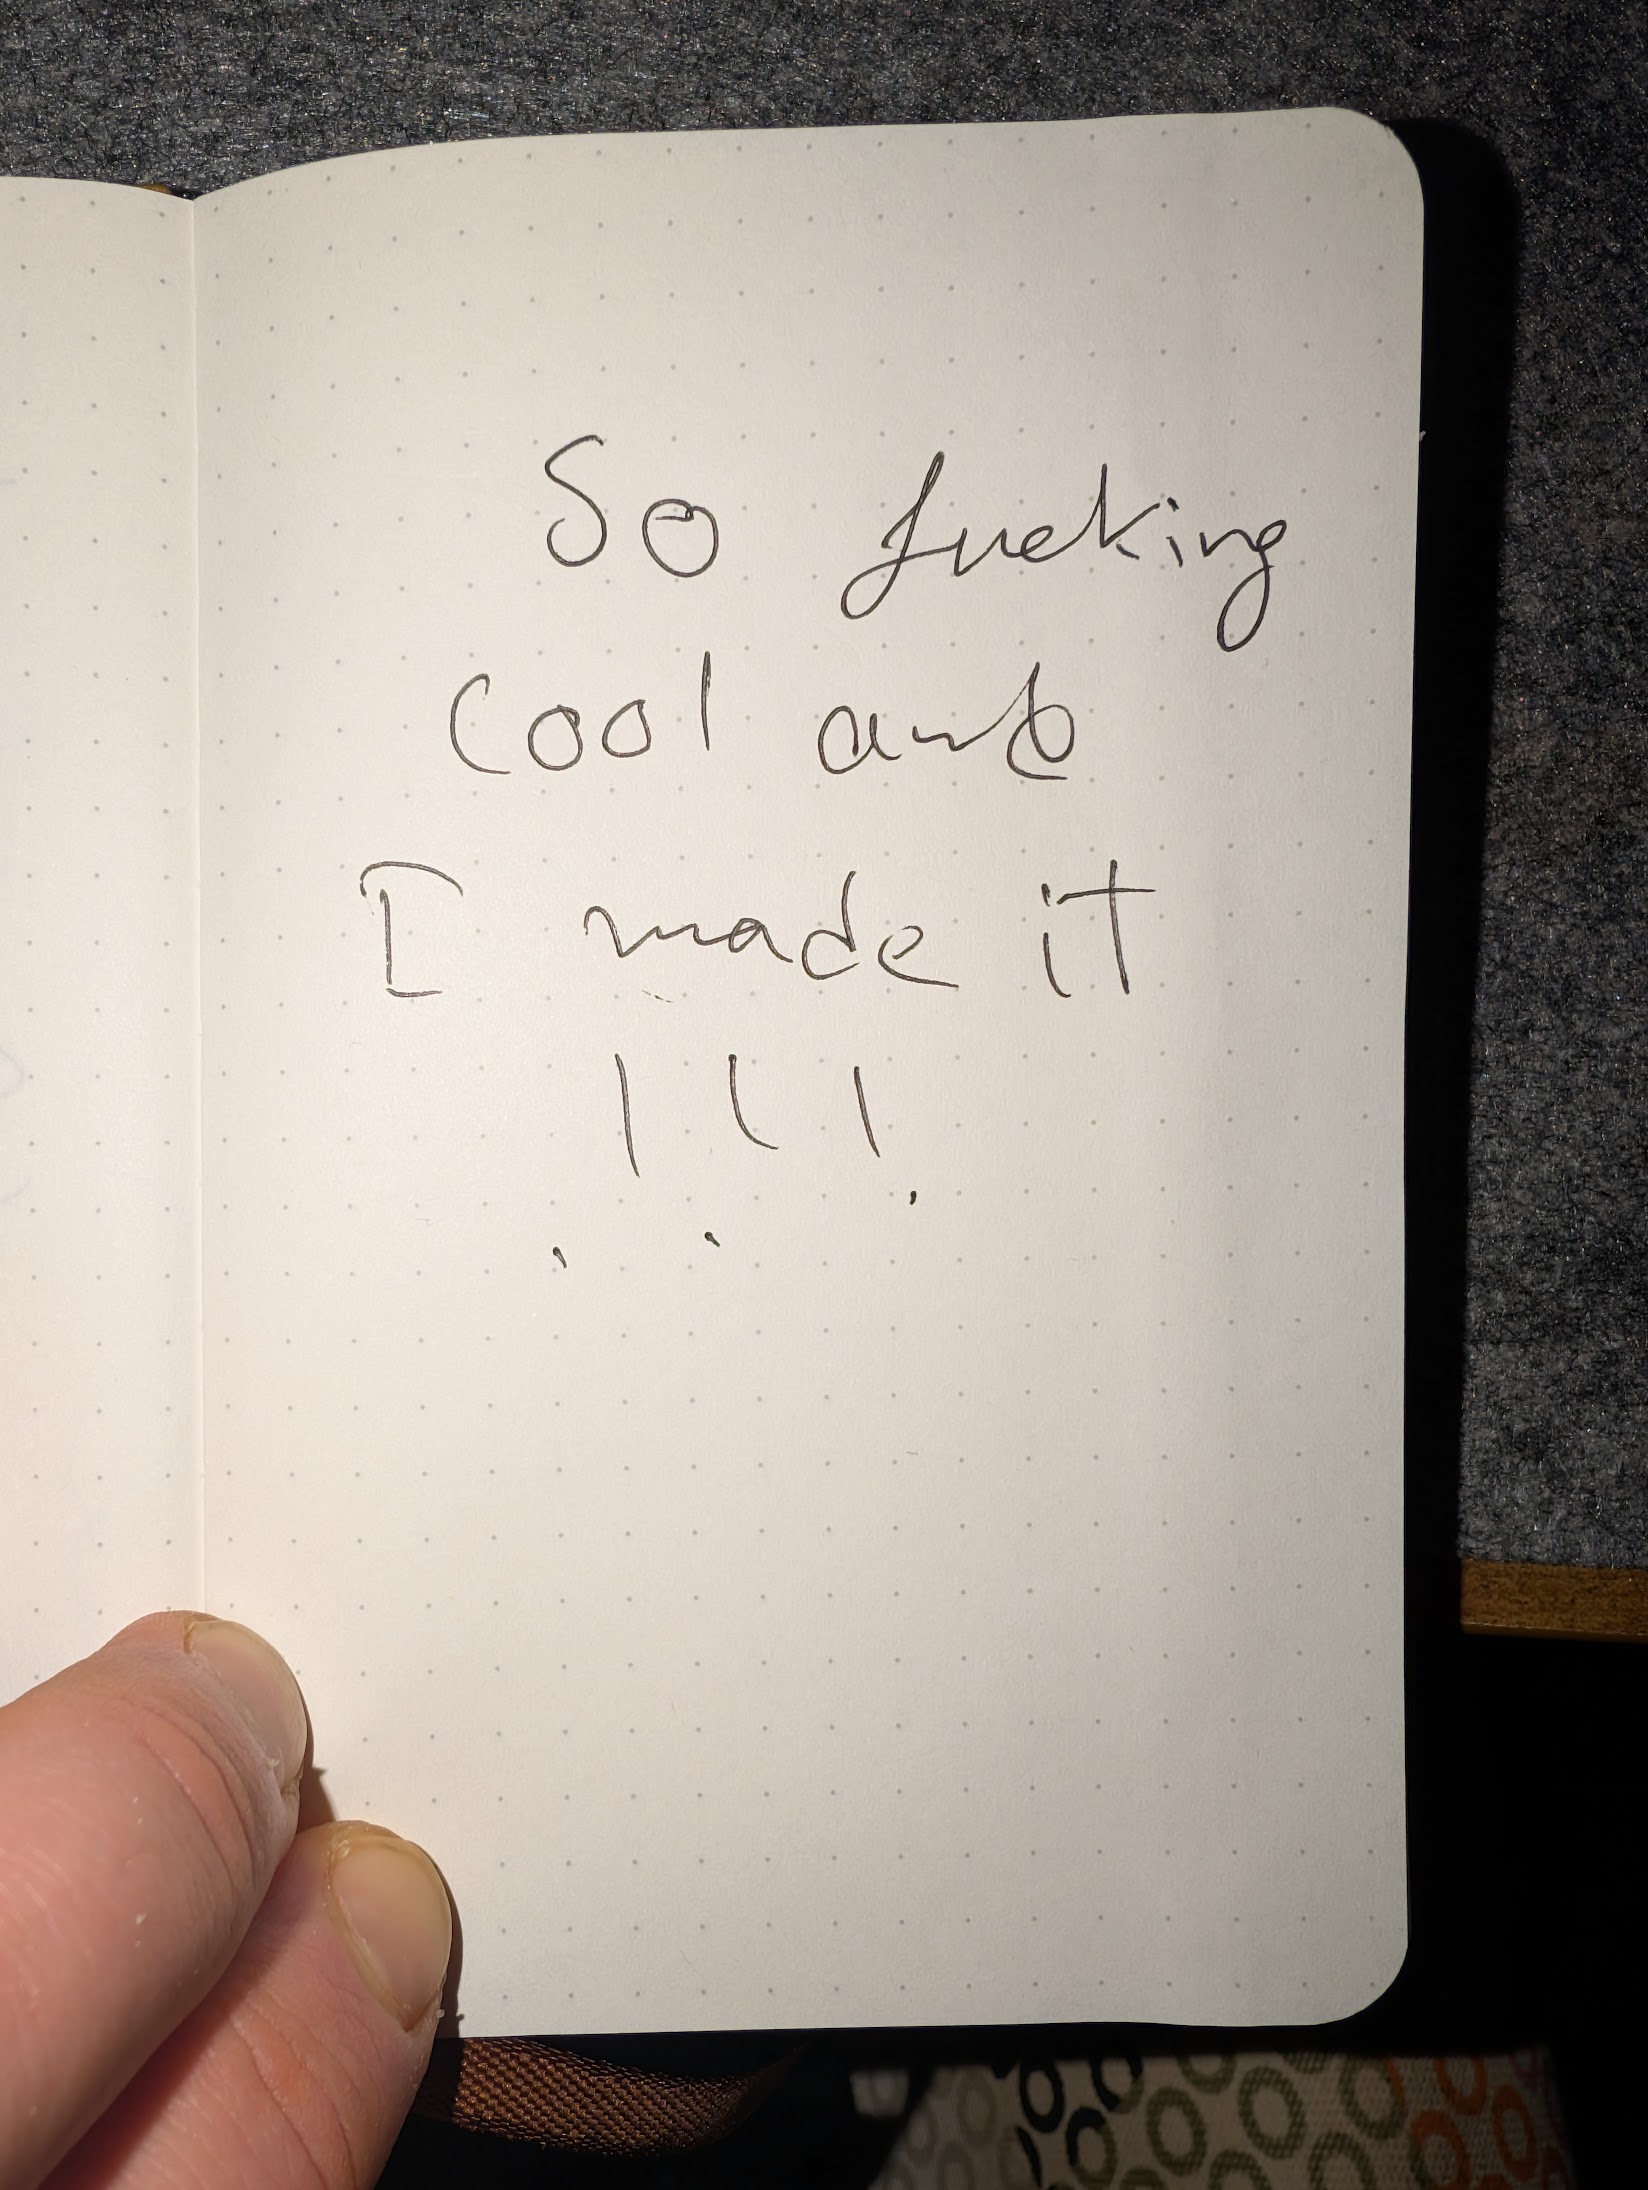 So fucking
cool and
I made it
!!!